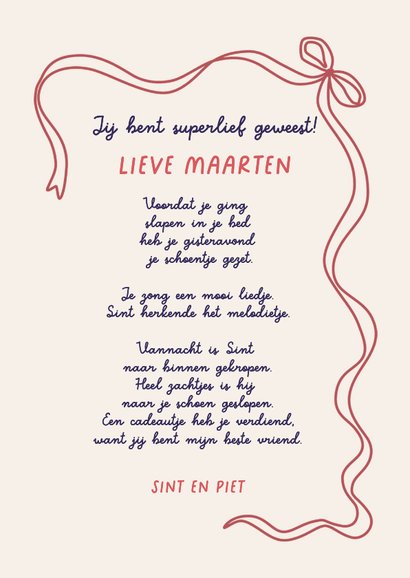 Jij bent superlief geweest!
LIEVE MAARTEN
Voordat je ging
slapen in je bed
heb je gisteravond
je schoentje gezet.
Je zong een mooi liedje.
Sint herkende het melodietje.
Vannacht is Sint
naar binnen gekropen.
Heel zachtjes is hij
naar je schoen geslopen.
Een cadeautje heb je verdiend,
want jij bent mijn beste vriend.
SINT EN PIET